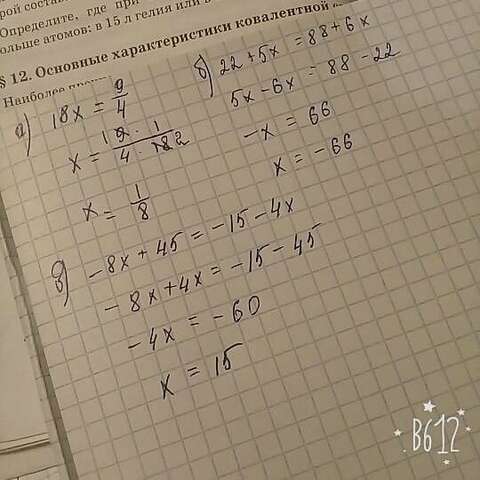 рой соста
Определите, где при
ольше атомов: в 15 л гелия или в
§ 12. Основные характеристики ковалентной
Наиболее
а) 18x = 9/4
x = 9 · 1 / 4 · 18 2
x = 1/8
б) 22 + 5x = 88 + 6x
5x - 6x = 88 - 22
-x = 66
x = -66
в) -8x + 45 = -15 - 4x
-8x + 4x = -15 - 45
-4x = -60
x = 15
B612